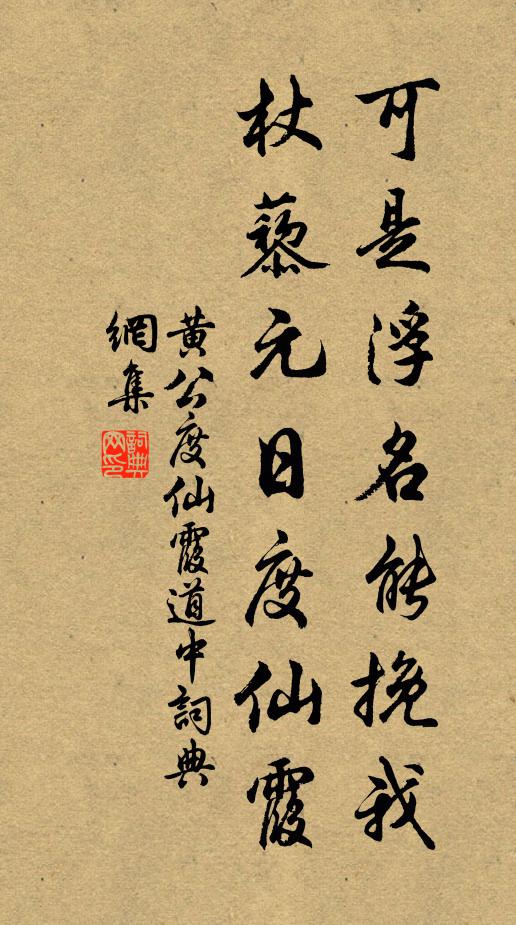 可是浮名能挽我
杖藜元日度仙霞
黃公度仙霞道中詞典
網集
詞典網印